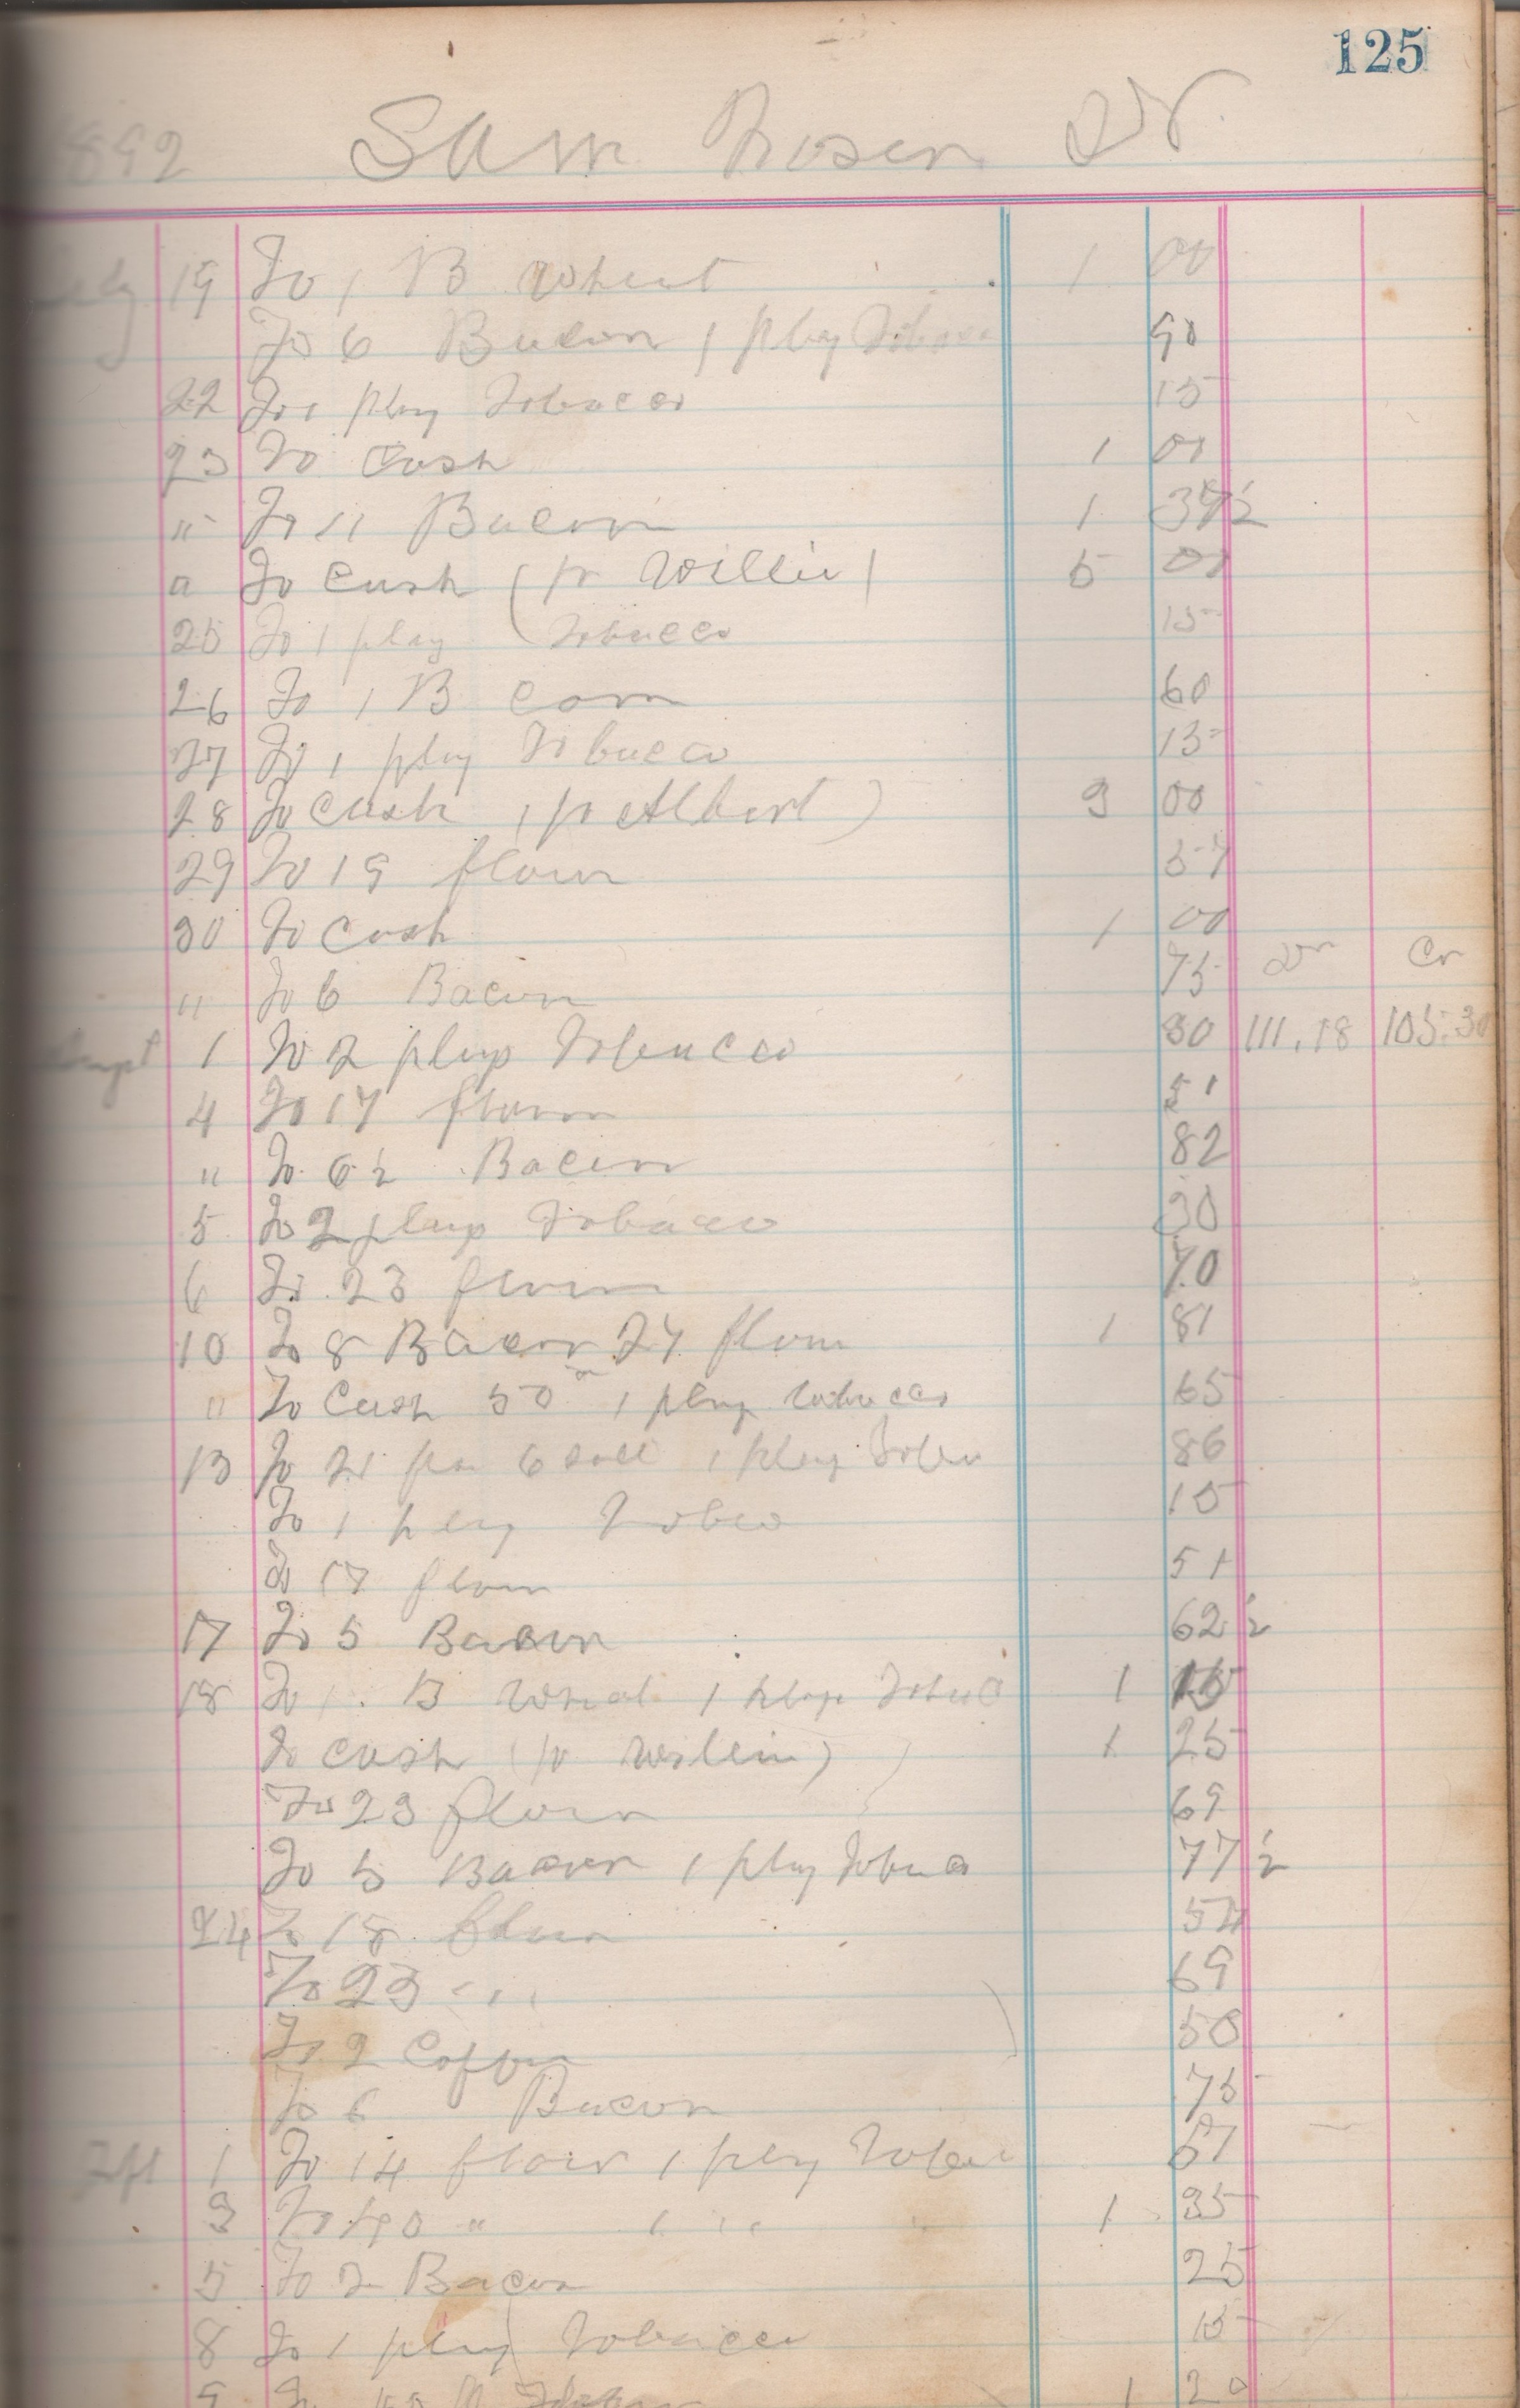 125
1892 Sam Rosen Dr
July 19 To 1 B Wheat 1 00
To 6 Bacon 1 plug Tobacco 90
22 To 1 plug Tobacco 15
23 To Cash 1 00
" To 11 Bacon 1 37½
" To Cash (pr Willie) 5 00
25 To 1 plug Tobacco 15
26 To 1 B Corn 60
27 To 1 plug Tobacco 15
28 To Cash (pr Albert) 3 00
29 To 19 flour 57
30 To Cash 1 00
" To 6 Bacon 75 Dr Cr
1 To 2 plugs Tobacco 30 111.18 105.30
4 To 17 flour 51
" To 6½ Bacon 82
5 To 2 plugs Tobacco 30
6 To 23 flour 70
10 To 8 Bacon 27 flour 1 81
" To Cash 50 1 plug tobacco 65
13 To 1 plug 86
To 1 plug Tobco 15
To 17 flour 51
17 To 5 Bacon 62½
18 To 1 B Wheat 1 plug 1 15
To Cash (pr Willie) 1 25
To 23 flour 69
To 5 Bacon 1 plug Tobaco 77½
24 To 18 flour 54
To 23 " " 69
To 2 Coffee 50
To 6 Bacon 75
1 To 14 flour 1 plug 57
3 To " " " 1 35
5 To 2 Bacon 25
8 To 1 plug Tobacco 15
9 To 1 20